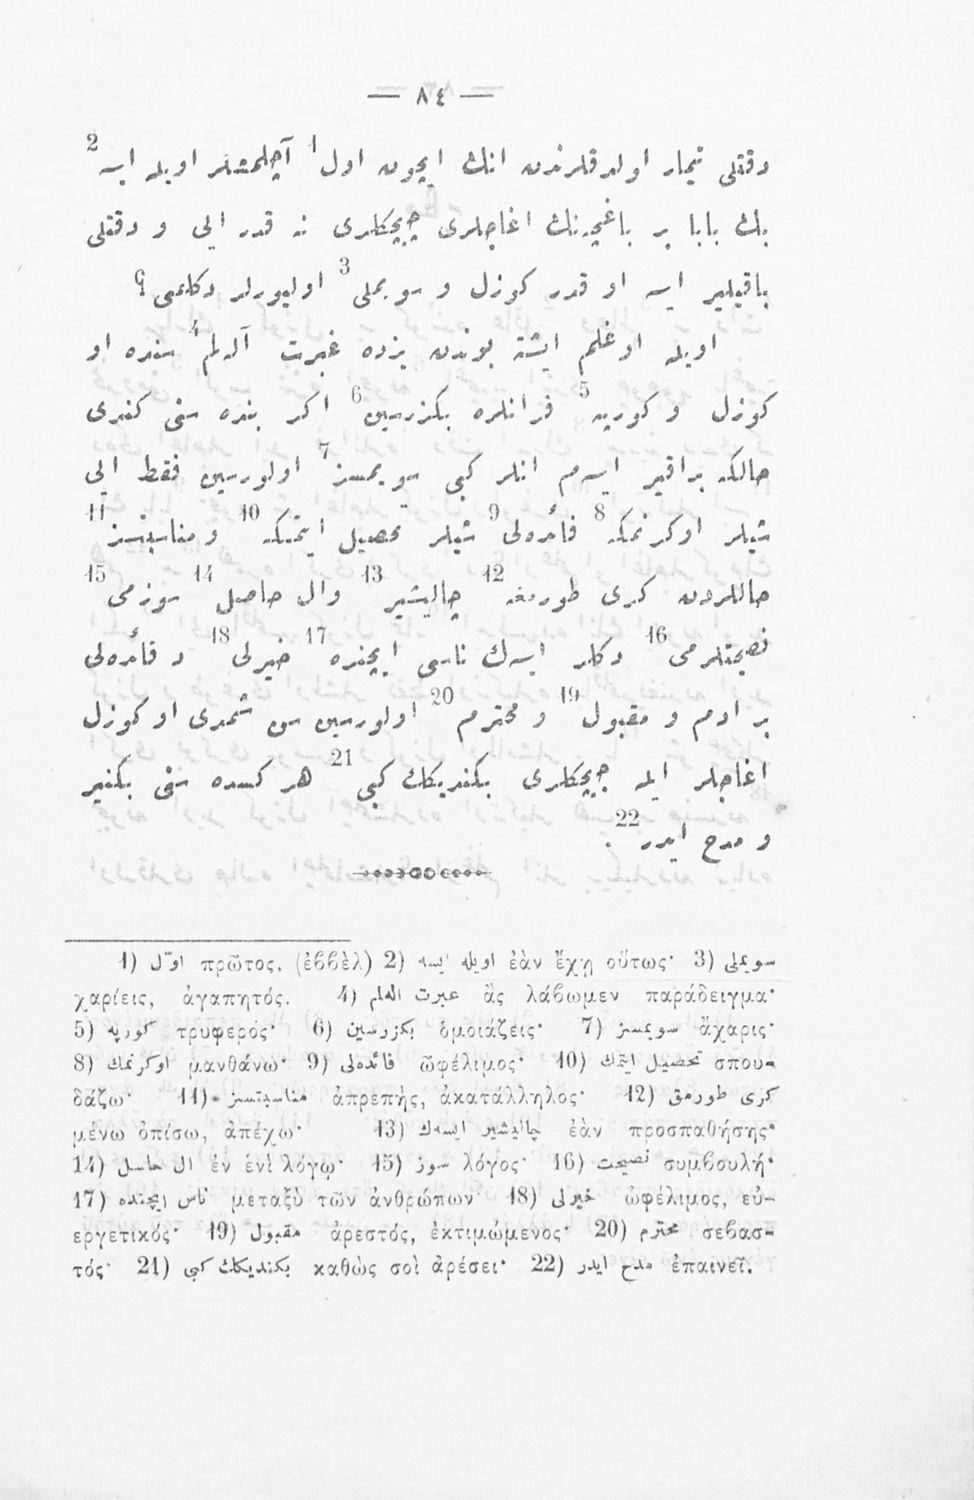 — ٨٤ —
دقتلی تیمار اولدقلرندن انك ایچون اول1 آچلمشلر اویله ایسه2
بك بابا بر باغچه‌نك اغاجلری چیچكلری نه قدر ایی و دقتلی
باقیلیر ایسه او قدر كوزل و سویملی3 اولیورلر دكلمی؟
اویله اوغلم ایشته بوندن بزده عبرت آله‌لم4 سنده او
كوزل و كورپه5 فدانلره بكزرسین6 اكر بنده سنی كندی
حالكه براقیر ایسه‌م انلر كبی سویمسز7 اولورسین فقط ایی
شیلر اوكرنمكه8 فائده‌لی9 شیلر تحصیل ایتمكه10 و مناسبتسز11
حاللردن كری طورمغه12 چالیشیر13 وال حاصل14 سوزمی15
نصیحتلرمی16 دكلر ایسه‌ك ناس ایچنده17 خیرلی18 و فائده‌لی
بر ادم و مقبول19 و محترم20 اولورسین سن شمدی او كوزل
اغاجلر ایله چیچكلری بكندیكك كبی21 هر كسده سنی بكنیر
و مدح ایدر22.
1) اوّل πρῶτος. (ἐββὲλ) 2) اویله ایسه ἐὰν ἔχῃ οὕτως· 3) سویملی
χαρίεις, ἀγαπητός. 4) عبرت الەلم ἂς λάβωμεν παράδειγμα·
5) كورپه τρυφερός· 6) بكزرسین ὁμοιάζεις· 7) سویمسز ἄχαρις·
8) اوكرنمك μανθάνω· 9) فائده‌لی ὠφέλιμος· 10) تحصیل ایتمك σπου-
δάζω· 11) مناسبتسز ἀπρεπὴς, ἀκατάλληλος· 12) كری طورمق
μένω ὀπίσω, ἀπέχω· 13) چالیشیر ایسه‌ك ἐὰν προσπαθήσῃς·
14) ال حاسل ἐν ἑνὶ λόγῳ· 15) سوز λόγος· 16) نصیحت συμβουλή·
17) ناس ایچنده μεταξὺ τῶν ἀνθρώπων· 18) خیرلی ὠφέλιμος, εὐ-
εργετικός· 19) مقبول ἀρεστός, ἐκτιμώμενος· 20) محترم σεβασ-
τός· 21) بكندیكك كبی καθὼς σοὶ ἀρέσει· 22) مدح ایدر ἐπαινεῖ.